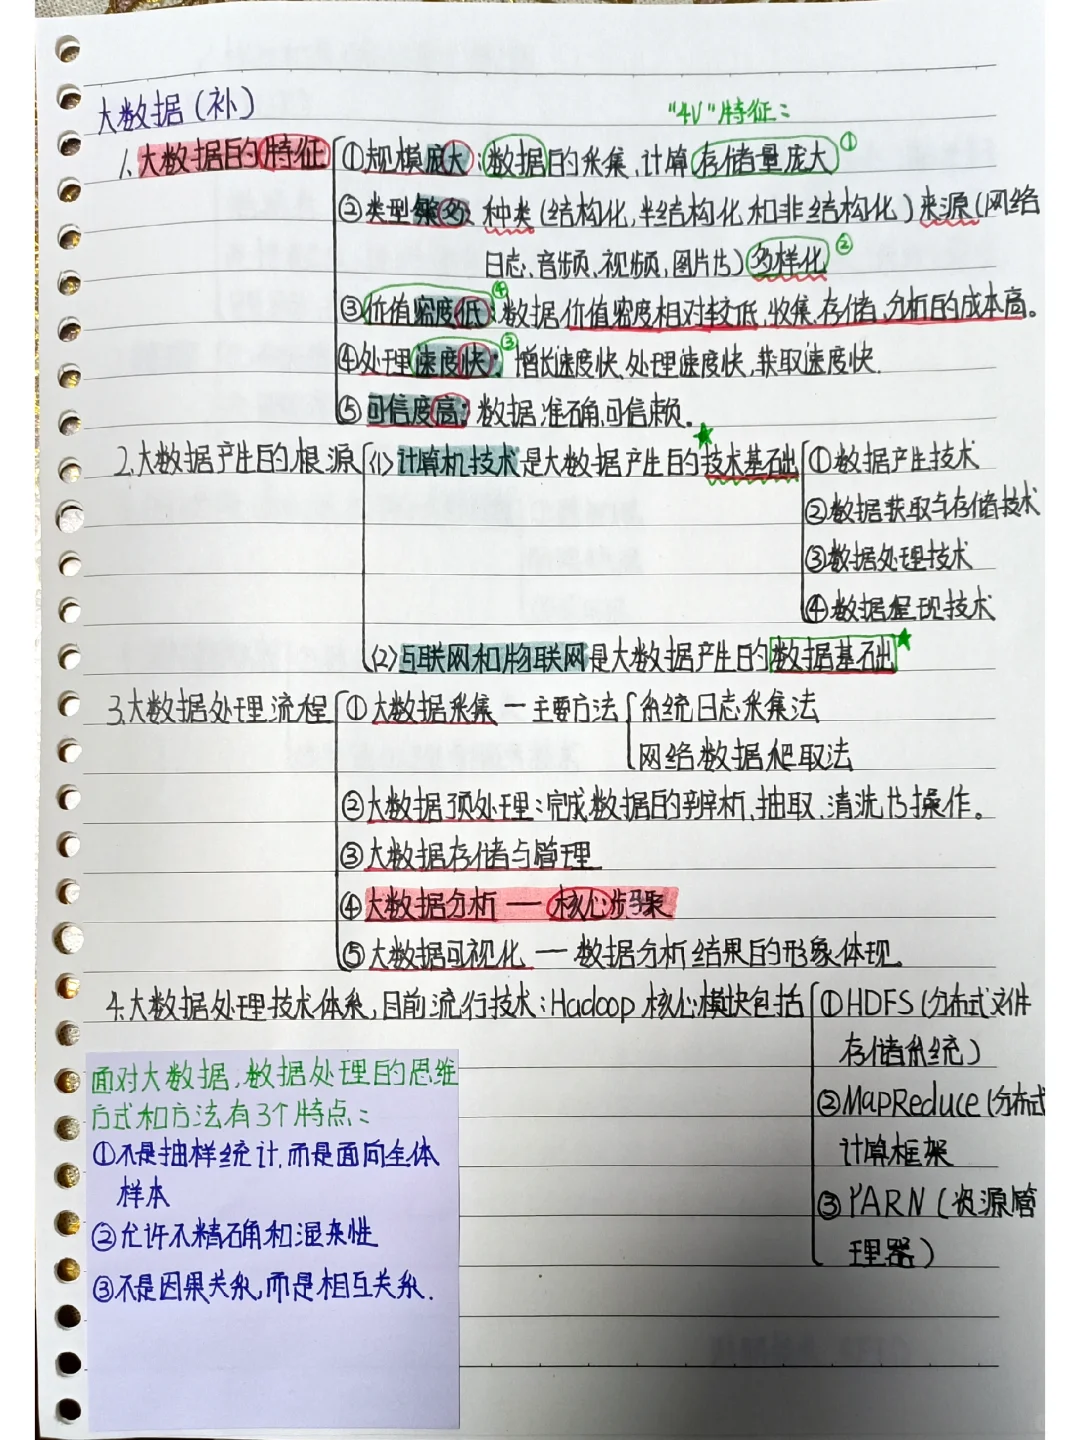 大数据(补)
"4V"特征:
1.大数据的特征 ①规模庞大:数据的采集、计算、存储量庞大 ①
②类型繁多: 种类(结构化,半结构化和非结构化)来源(网络
日志、音频、视频,图片等)多样化 ②
③价值密度低:数据价值密度相对较低,收集、存储、分析的成本高。 ④
④处理速度快: 增长速度快、处理速度快,获取速度快. ③
⑤可信度高: 数据准确可信赖.
2.大数据产生的根源 (1)计算机技术是大数据产生的技术基础 ①数据产生技术
②数据获取与存储技术
③数据处理技术
④数据呈现技术
(2)互联网和物联网是大数据产生的数据基础
3.大数据处理流程 ①大数据采集 — 主要方法 系统日志采集法
网络数据爬取法
②大数据预处理:完成数据的辨析、抽取、清洗等操作。
③大数据存储与管理
④大数据分析 — 核心步骤
⑤大数据可视化 — 数据分析结果的形象体现.
4.大数据处理技术体系,目前流行技术:Hadoop 核心模块包括 ①HDFS(分布式文件
存储系统)
②MapReduce(分布式
计算框架
③YARN(资源管
理器)
面对大数据,数据处理的思维
方式和方法有3个特点:
①不是抽样统计,而是面向全体
样本
②允许不精确和混杂性
③不是因果关系,而是相互关系.